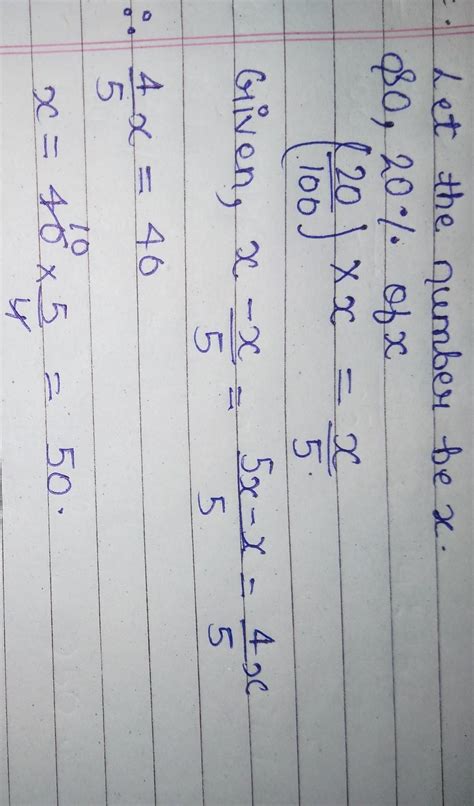 Let the number be x.
So, 20% of x
(20/100) × x = x/5.
Given, x - x/5 = 5x-x/5 = 4x/5
∴ 4/5 x = 40
x = 40 10 × 5/4 = 50.